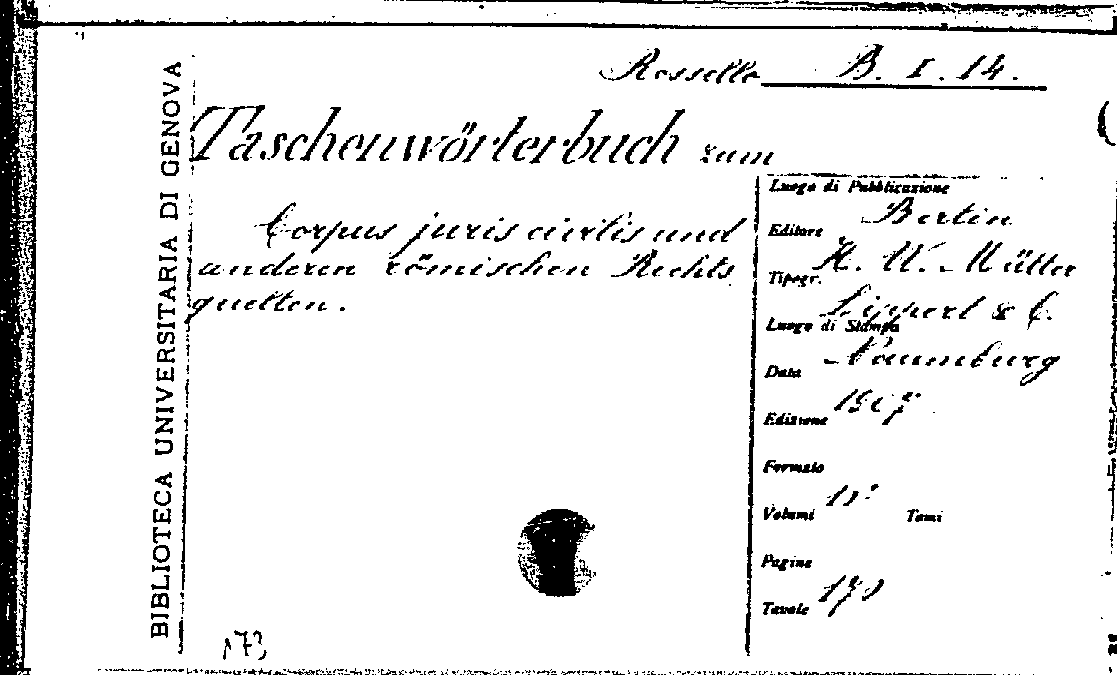 Rossello B. I. 14.
BIBLIOTECA UNIVERSITARIA DI GENOVA
Taschenwörterbuch zum
Corpus juris civilis und
anderen römischen Rechts
quellen.
Luogo di Pubblicazione
Berlin
Editore
H. W. Müller
Tipogr.
Lippert & C.
Luogo di Stampa
Naumburg
Data
1907
Edizione
Formato
Volumi Tomi
Pagine
Tavole
173